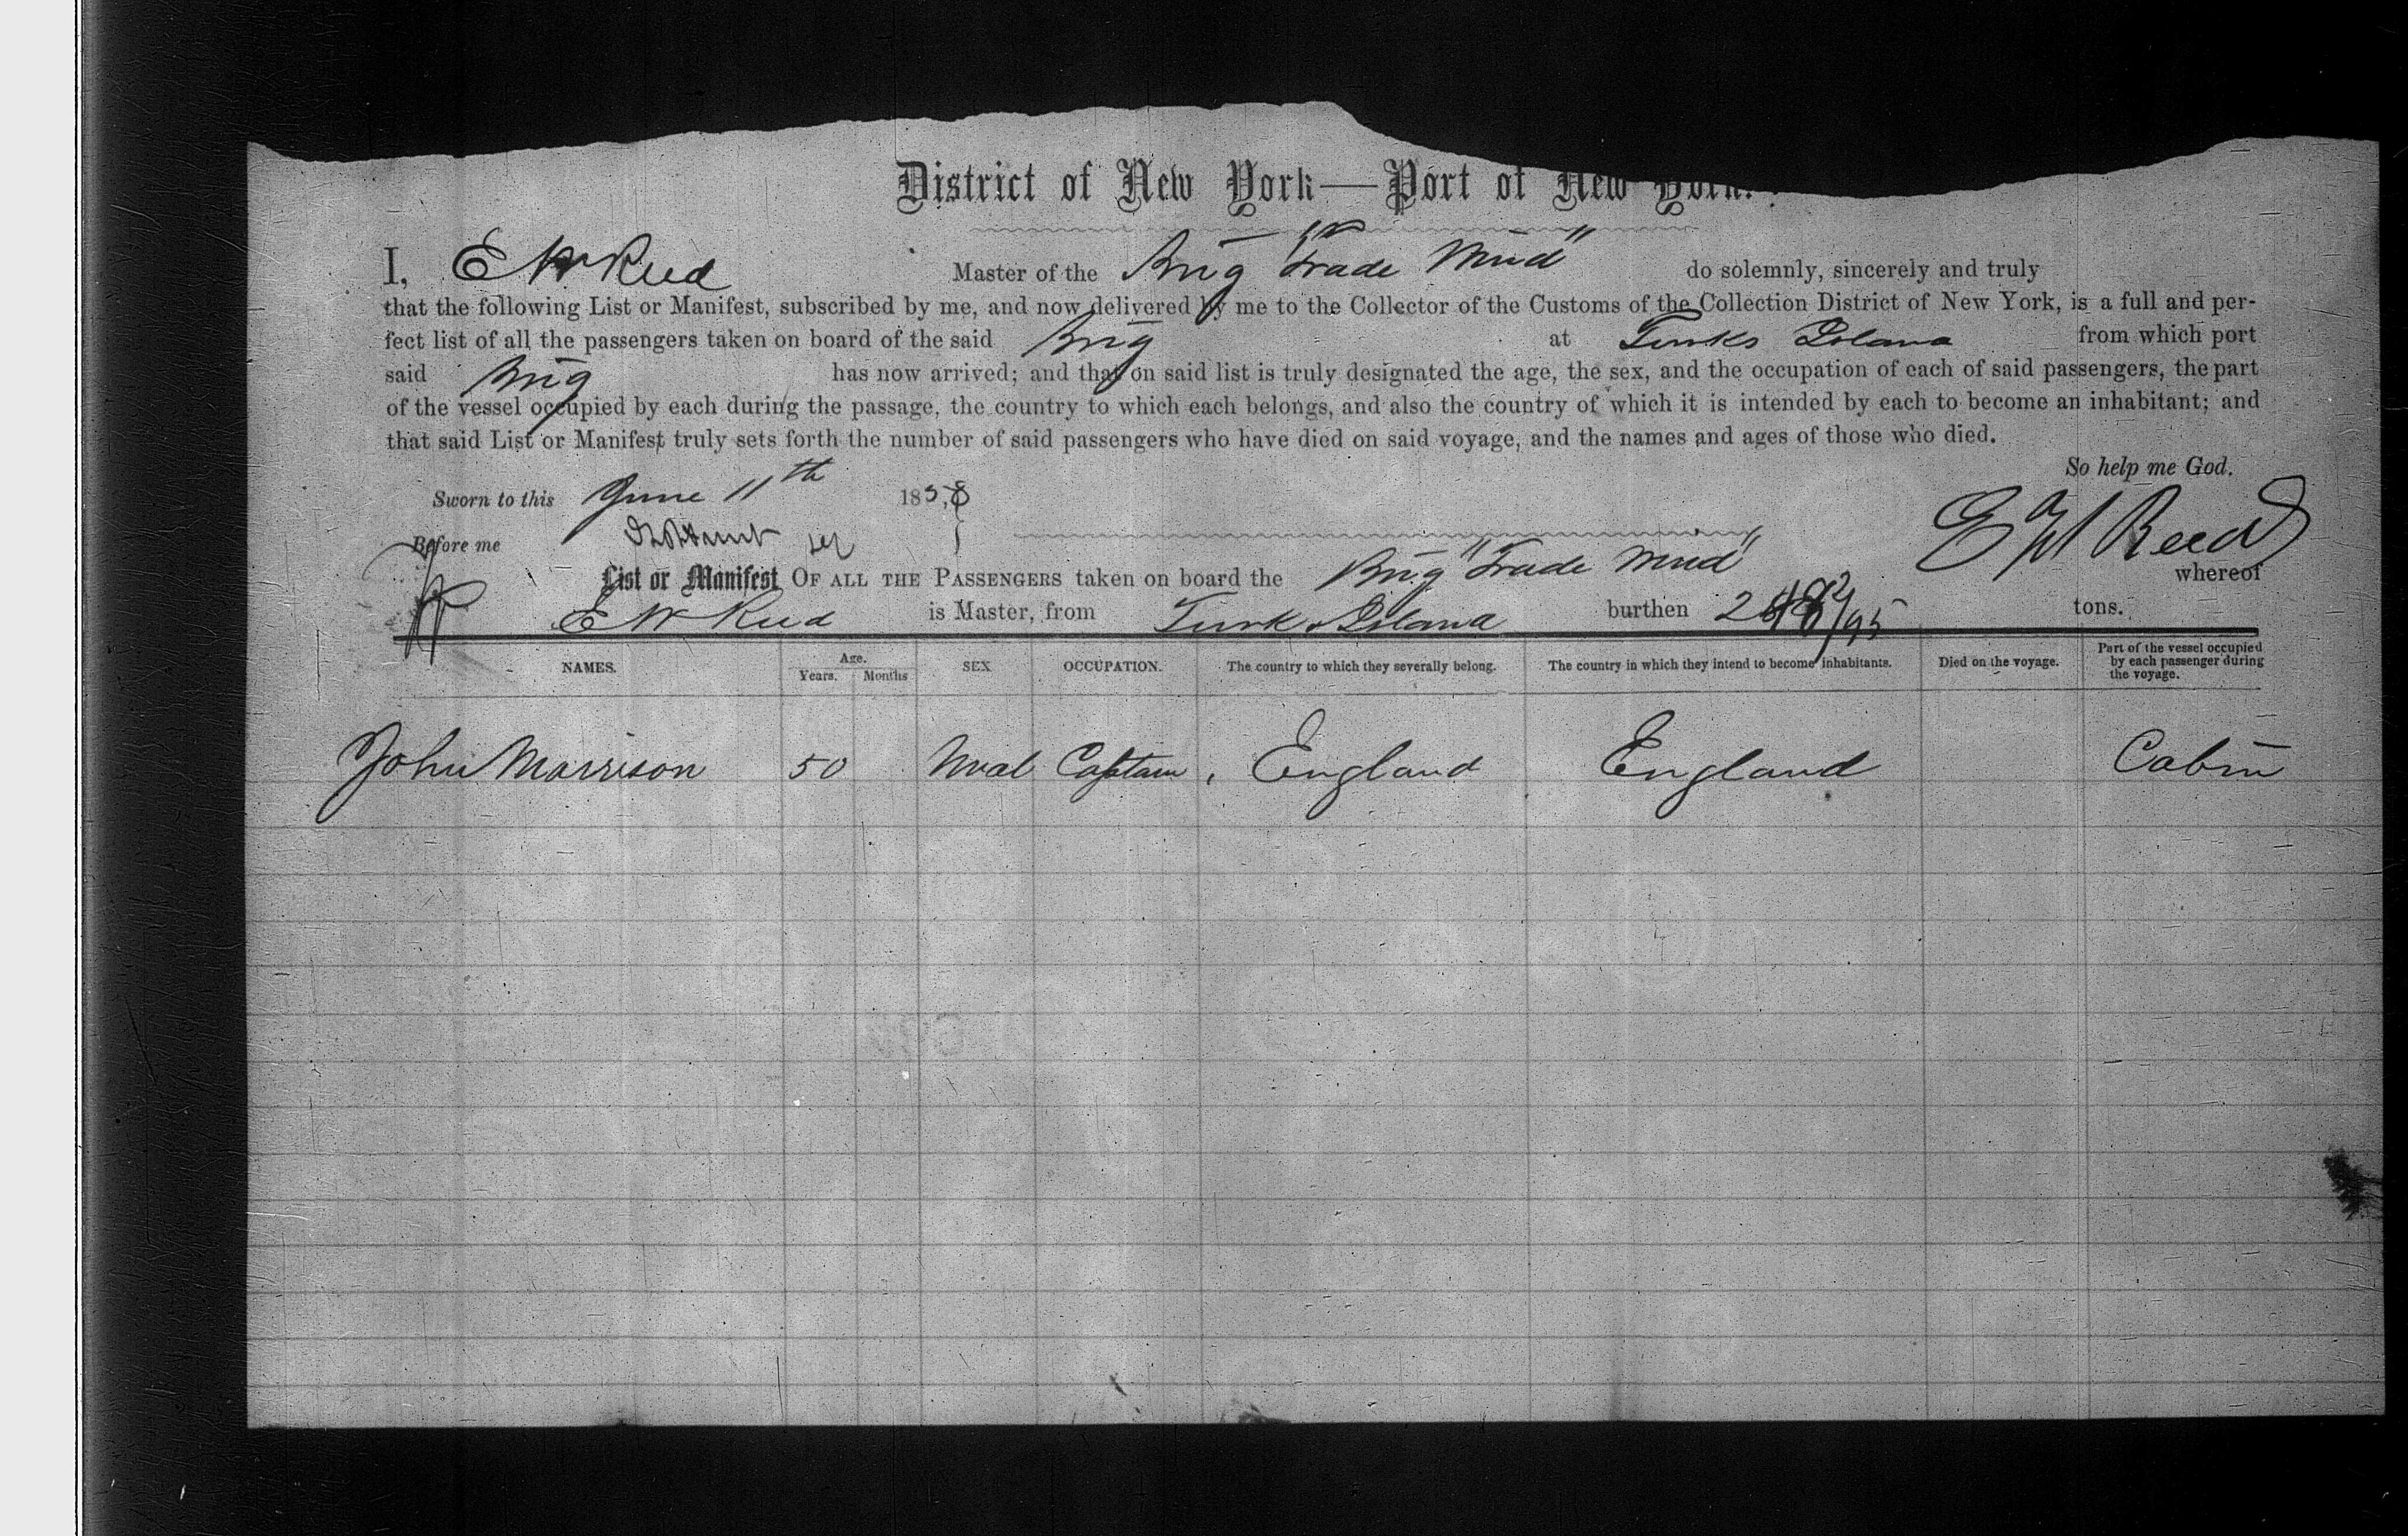 District of New York—Port of New York.
I, E W Reed Master of the Brig "Trade Wind" do solemnly, sincerely and truly
that the following List or Manifest, subscribed by me, and now delivered by me to the Collector of the Customs of the Collection District of New York, is a full and per-
fect list of all the passengers taken on board of the said Brig at Turks Island from which port
said Brig has now arrived; and that on said list is truly designated the age, the sex, and the occupation of each of said passengers, the part
of the vessel occupied by each during the passage, the country to which each belongs, and also the country of which it is intended by each to become an inhabitant; and
that said List or Manifest truly sets forth the number of said passengers who have died on said voyage, and the names and ages of those who died.
So help me God.
Sworn to this June 11th 1858
E W Reed
Before me
List or Manifest OF ALL THE PASSENGERS taken on board the Brig "Trade Wind" whereof
E W Reed is Master, from Turks Island burthen tons.
NAMES. Age. Years. Months SEX OCCUPATION. The country to which they severally belong. The country in which they intend to become inhabitants. Died on the voyage. Part of the vessel occupied by each passenger during the voyage.
John Morrison 50 Mal Captain England England Cabin